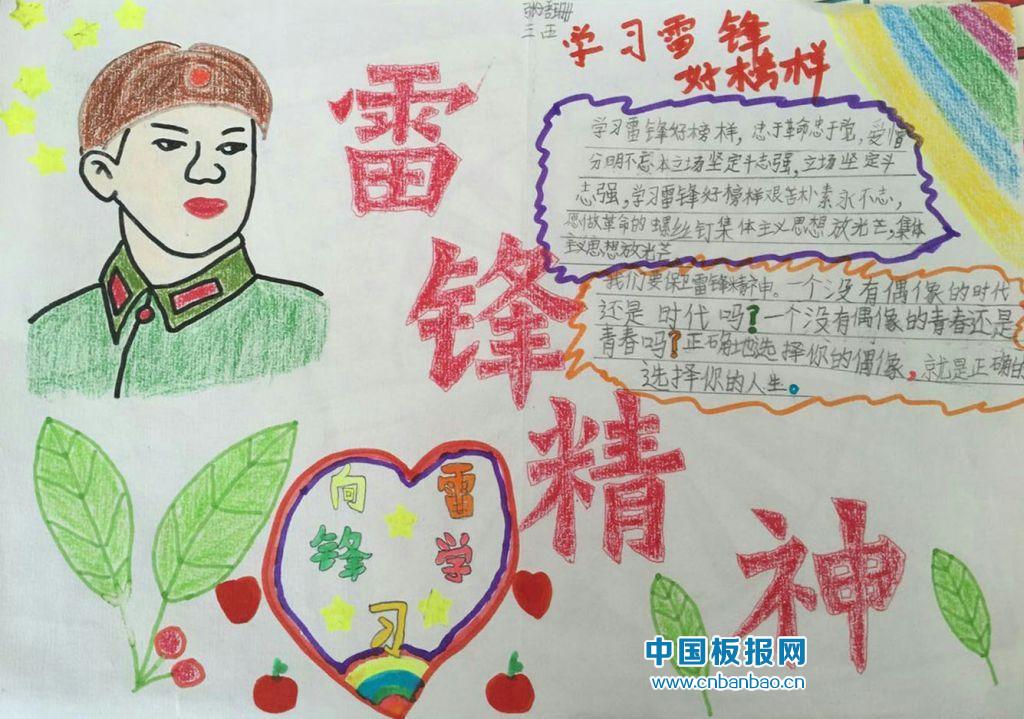 三 五
学习雷锋
好榜样
学习雷锋好榜样，忠于革命忠于党，爱憎
分明不忘本立场坚定斗志强，立场坚定斗
志强，学习雷锋好榜样艰苦朴素永不志，
愿做革命的螺丝钉集体主义思想放光芒，集体
主义思想放光芒
我们要保卫雷锋精神。一个没有偶像的时代
还是时代吗？一个没有偶像的青春还是
青春吗？正确地选择你的偶像，就是正确的
选择你的人生。
雷
锋
精
神
向雷
锋学
习
中国板报网
www.cnbanbao.cn